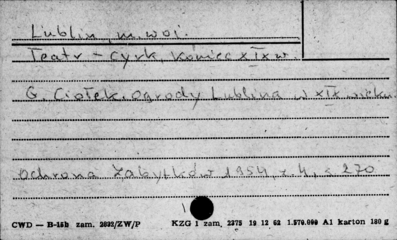 Lublin, m. woj.
Teatr – cyrk, koniec XIX w.
G. Ciołek, Ogrody Lublina w XIX wieku
Ochrona Zabytków 1954, z 4, s 270
CWD — B-15b zam. 2832/ZW/P KZG 1 zam. 2375 19 12 62 1.570.000 A1 karton 180 g